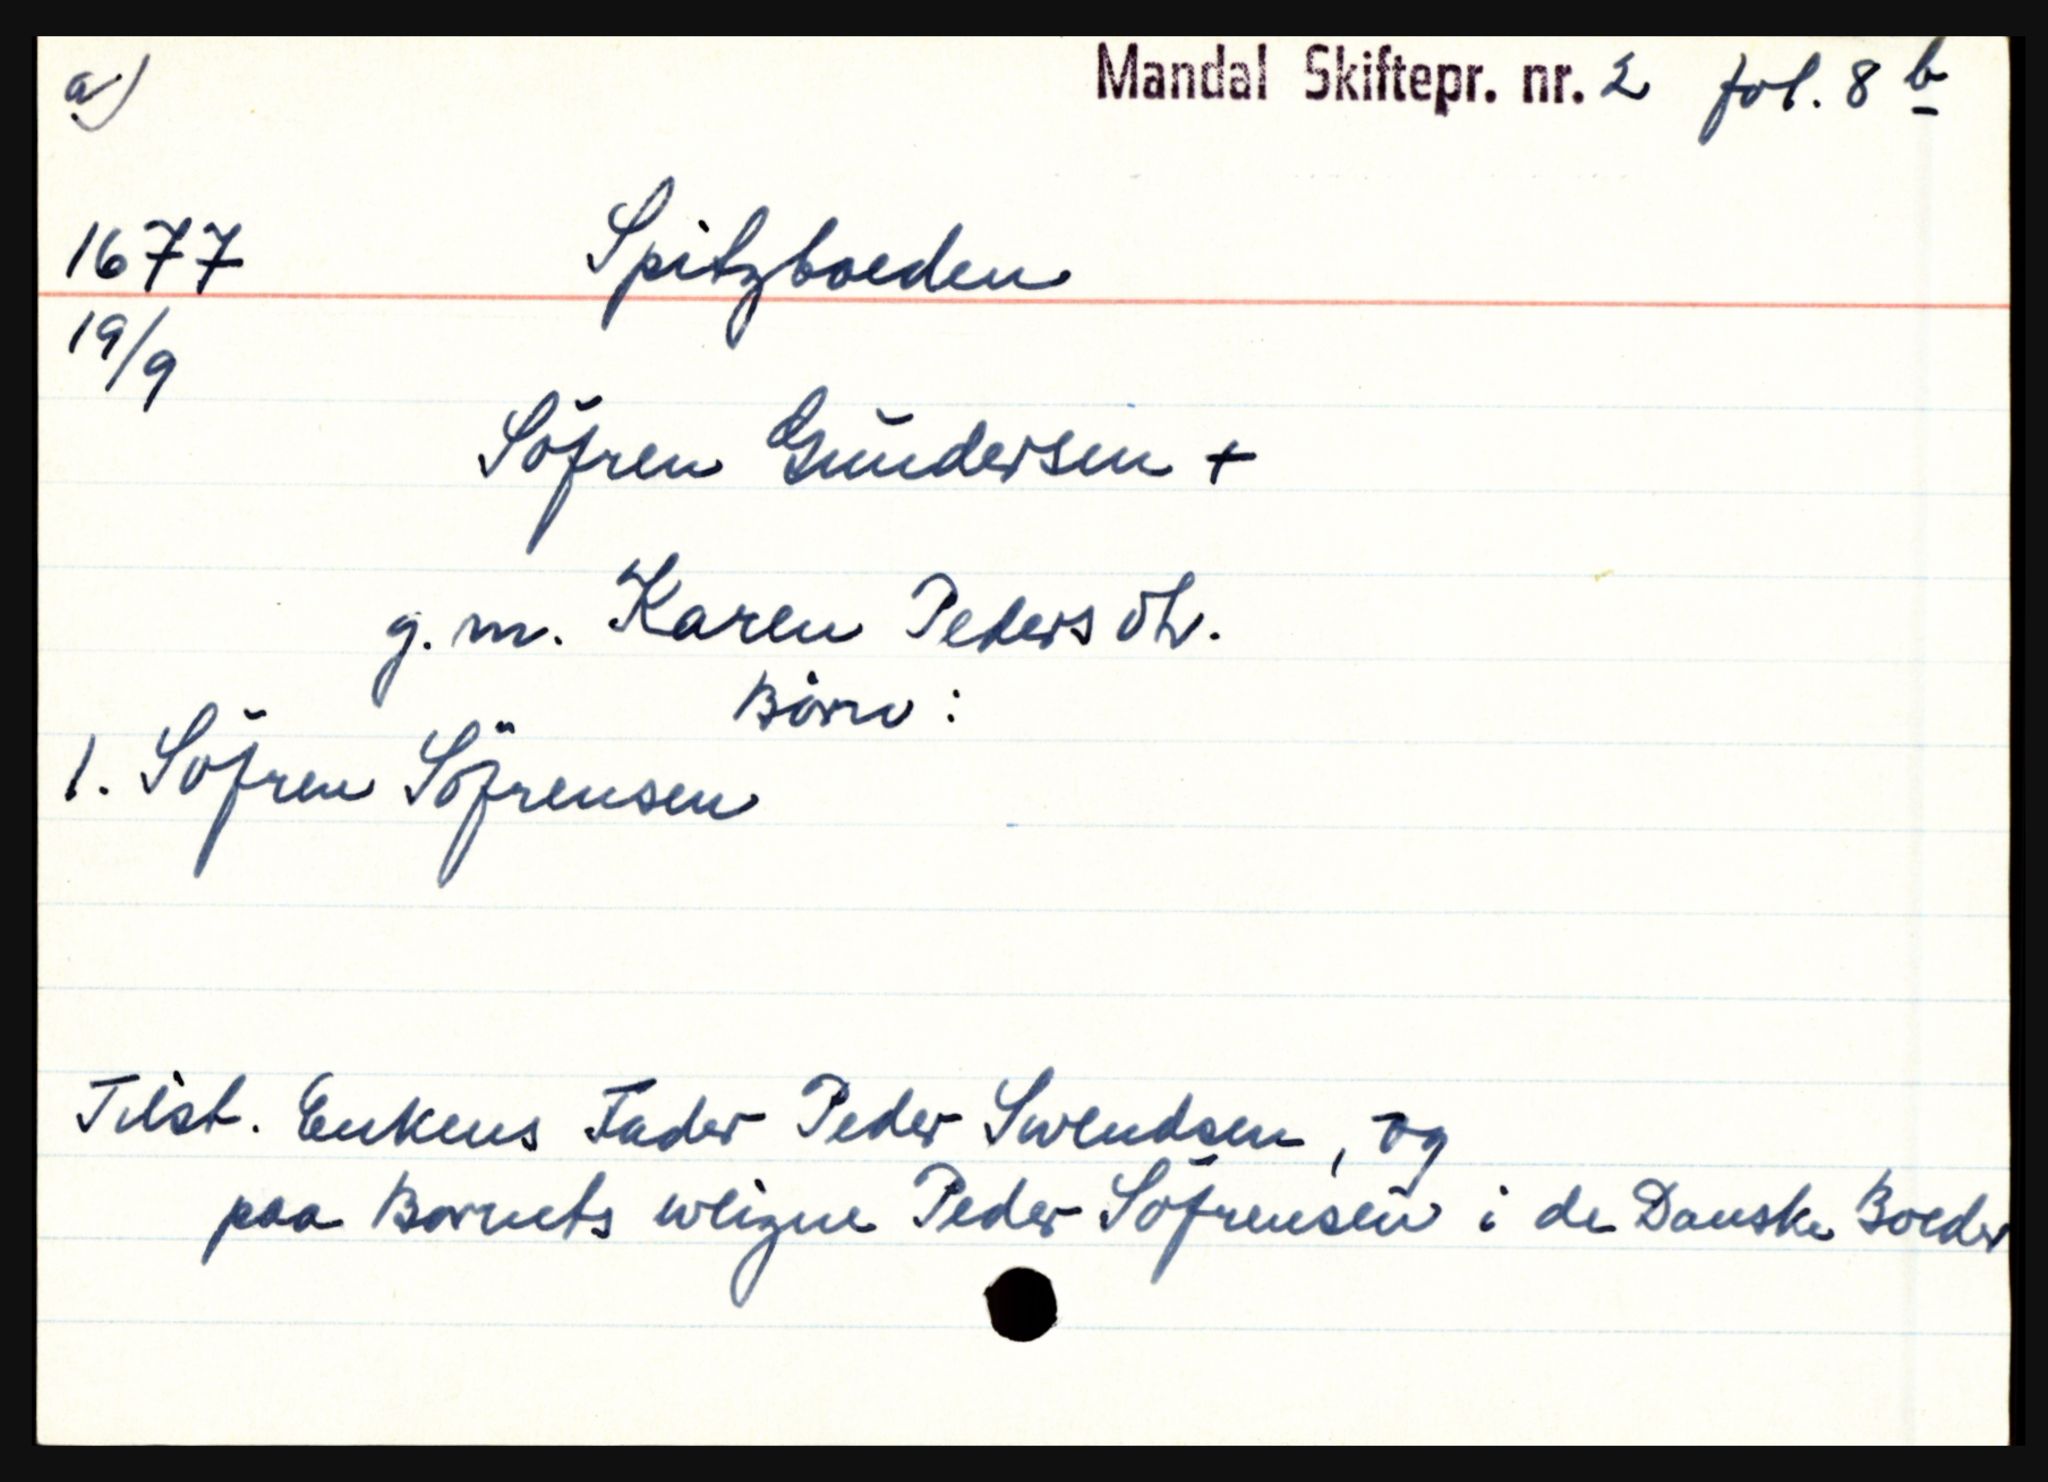 a)
Mandal Skiftepr. nr. 2 fol. 8 b
1677
Spitzboeden
19/9
Söfren Gŭndersen +
g.m. Karen Peders dtr.
Börn :
1. Söfren Söfrensen
Tilst. Enkens Fader Peder Swendsen, og
paa Barnets weigne Peder Söfrensen i de Danske Boeder